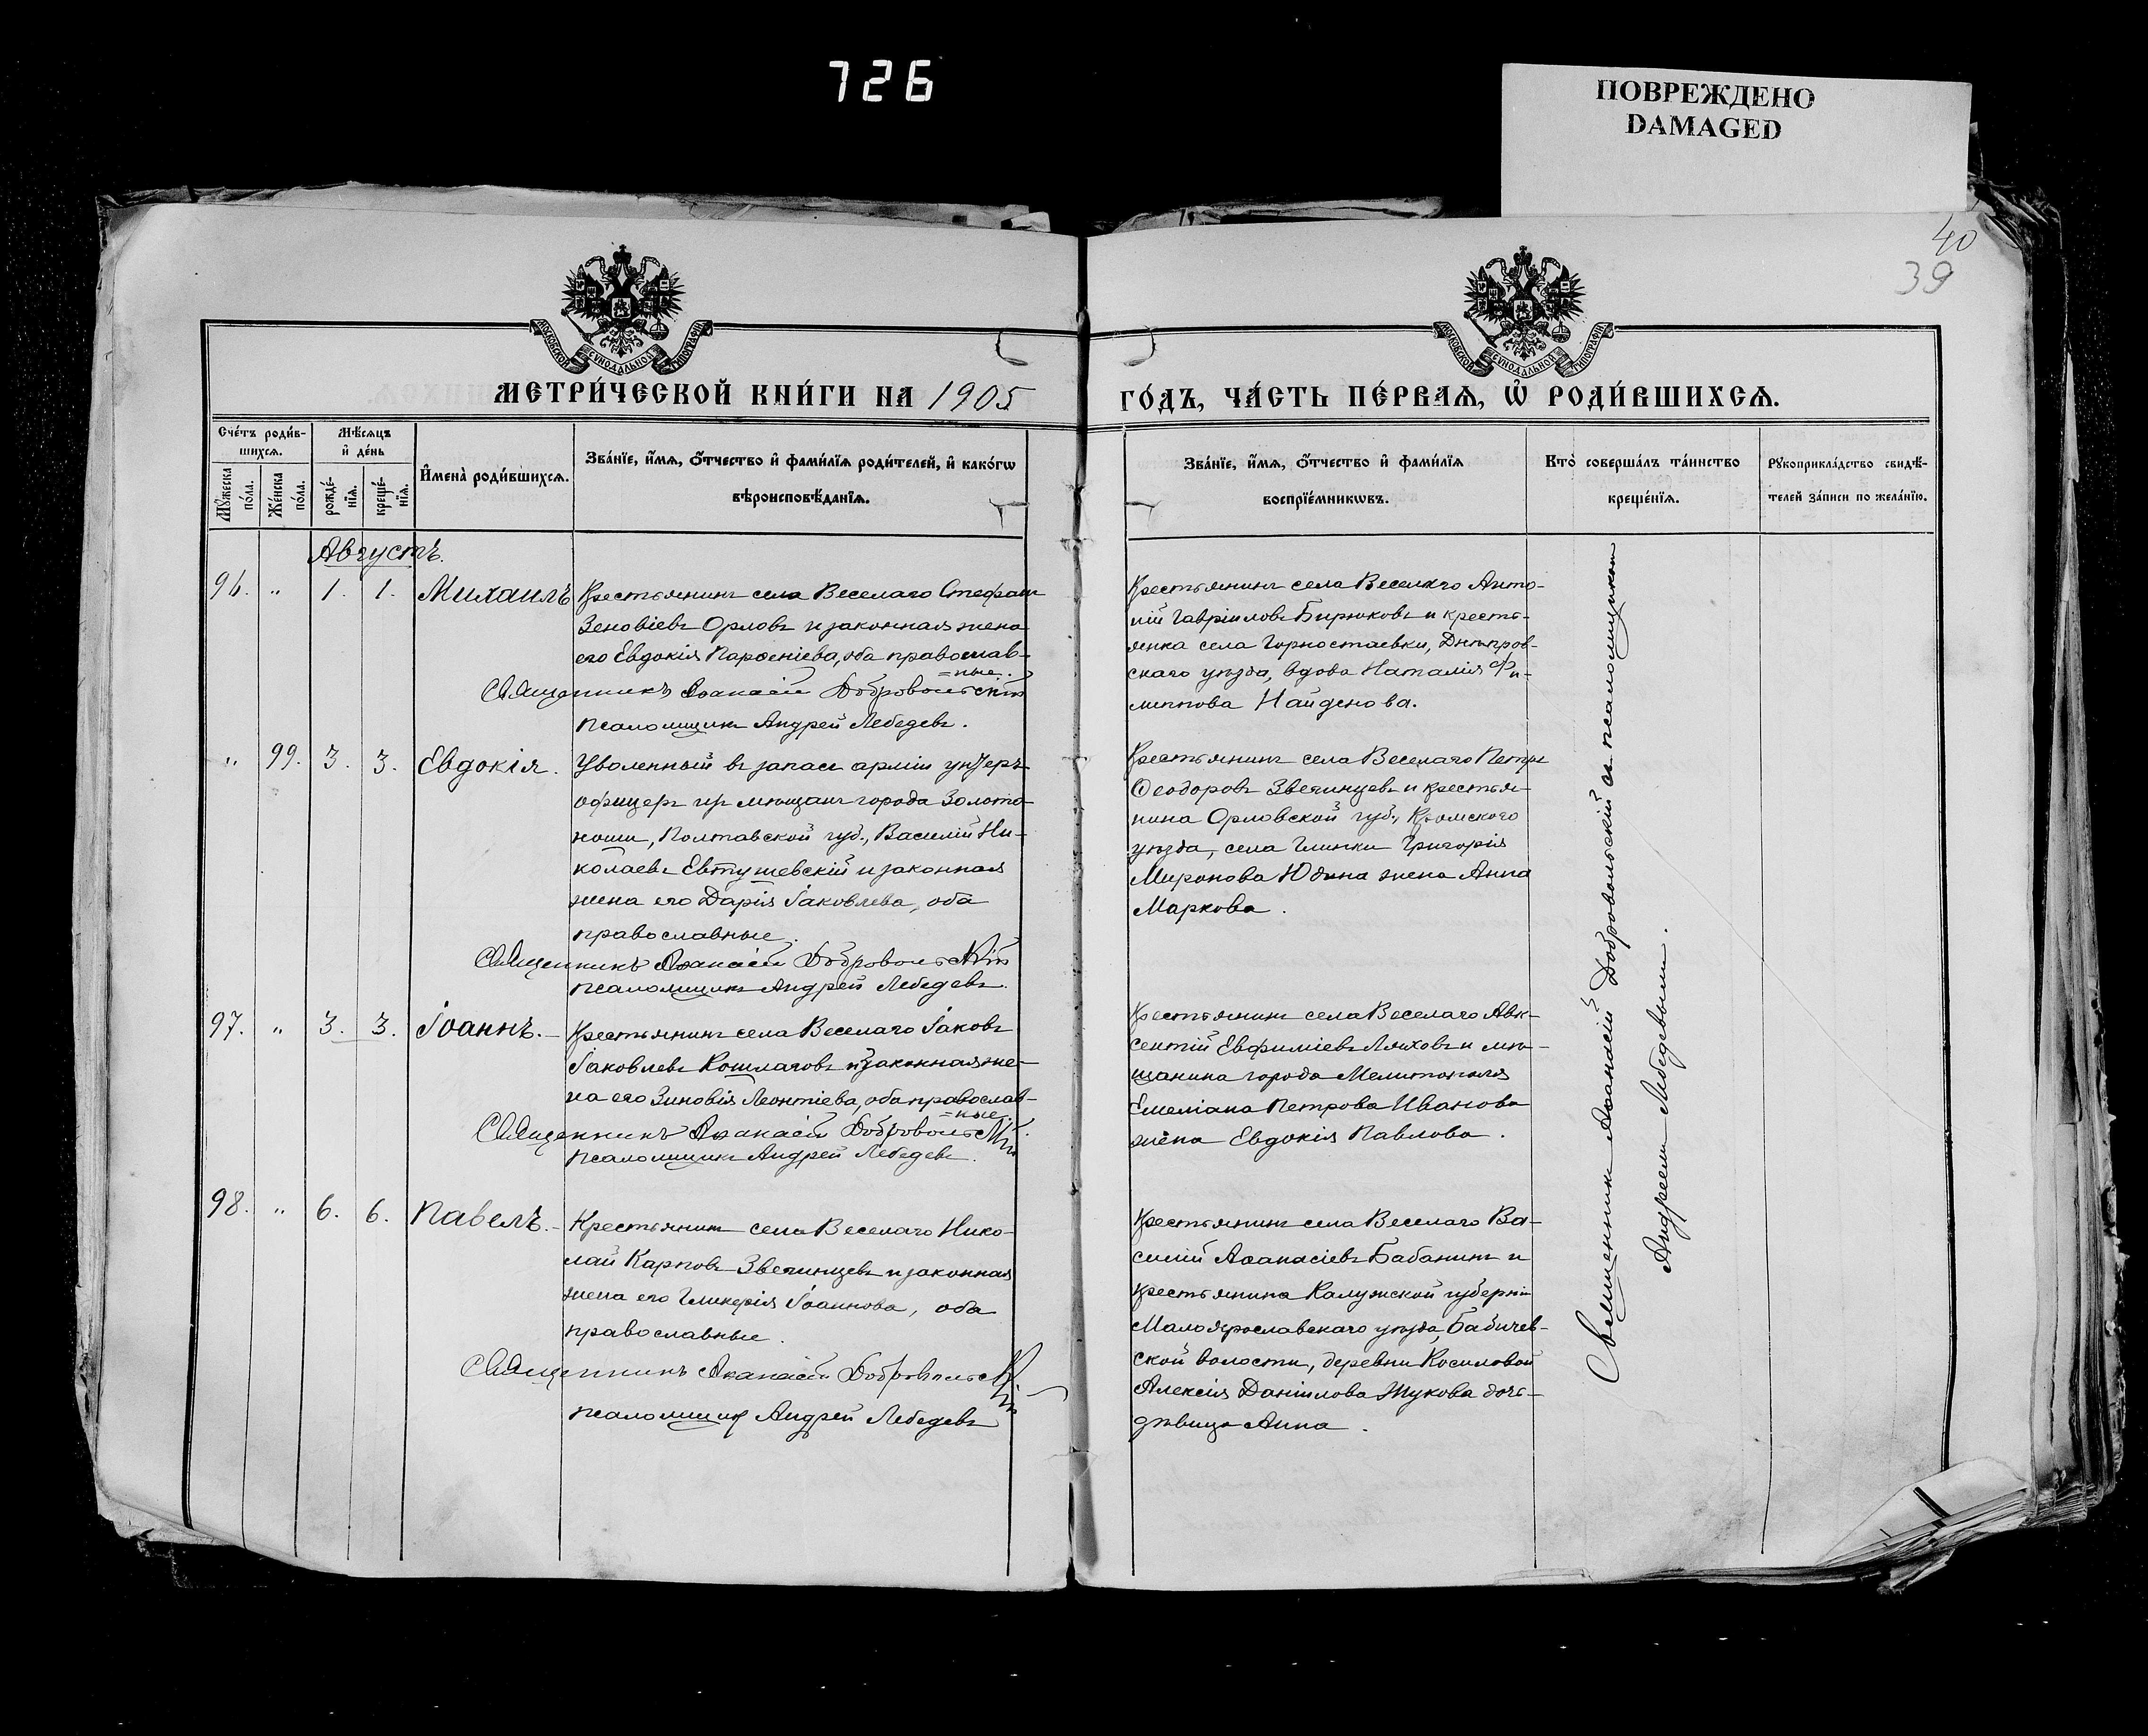 726
ПОВРЕЖДЕНО
DAMAGED
40
39
МОСКОВСКОЙ СѴНОДАЛЬНОЙ ТИПОГРАФІИ
МОСКОВСКОЙ СѴНОДАЛЬНОЙ ТИПОГРАФІИ
МЕТРИ́ЧЕСКОЙ КНИ́ГИ НА 1905
ГО́ДЪ, ЧА́СТЬ ПЕ́РВАѦ, Ѡ҆ РОДИ́ВШИХСѦ.
Сче́тъ роди́в-
шихсѧ.
Мꙋжеска по́ла.
Же́нска по́ла.
Мѣ́сѧцъ
и҆ де́нь
рожде́-
нїѧ.
креще́-
нїѧ.
И҆мена̀ роди́вшихсѧ.
Зва́нїе, и҆́мѧ, ѻ҆́тчество и҆ фами́лїѧ роди́телей, и҆ како́гѡ
вѣроисповѣ́данїѧ.
Зва́нїе, и҆́мѧ, ѻ҆́тчество и҆ фами́лїѧ
воспрїе́мникѡвъ.
Кто̀ соверша́лъ та́инство
креще́нїѧ.
Рꙋкоприкла́дство свидѣ́-
телей за́писи по жела́нїю.
Августъ.
96. " 1. 1. Михаилъ
Крестьянинъ села Веселаго Стефанъ
Зеновіевъ Орловъ и законная жена
его Евдокія Парѳеніева, оба православ-
=ные.
Священникъ Аѳанасій Добровольскій
Псаломщикъ Андрей Лебедевъ.
Крестьянинъ села Веселаго Анто-
ній Гавріиловъ Бирюковъ и кресть-
янка села Горностаевки, Днѣпров-
скаго уѣзда, вдова Наталія Фи-
липпова Найденова.
" 99. 3. 3. Евдокія.
Уволенный въ запасъ арміи унтеръ
офицеръ изъ мѣщанъ города Золото-
ноши, Полтавской губ., Василій Ни-
колаевъ Евтушевскій и законная
жена его Дарія Іаковлева, оба
православные.
Священникъ Аѳанасій Добровольскій
Псаломщикъ Андрей Лебедевъ.
Крестьянинъ села Веселаго Петръ
Ѳеодоровъ Звегинцевъ и крестья-
нина Орловской губ., Кромского
уѣзда, села Глинки Григорія
Миронова Юдина жена Анна
Маркова.
97. " 3. 3. Іоаннъ.
Крестьянинъ села Веселаго Іаковъ
Іаковлевъ Кошлаговъ и законная же-
на его Зиновія Леонтіева, оба православ-
=ные.
Священникъ Аѳанасій Добровольскій.
Псаломщикъ Андрей Лебедевъ.
Крестьянинъ села Веселаго Авк-
сентій Евфиміевъ Ляховъ и мѣ-
щанина города Мелитополя
Емеліана Петрова Иванова
жена Евдокія Павлова.
98. " 6. 6. Павелъ.
Крестьянинъ села Веселаго Нико-
лай Карповъ Звегинцевъ и законная
жена его Гликерія Іоаннова, оба
православные.
Священникъ Аѳанасій Добровольскій
Псаломщикъ Андрей Лебедевъ
Крестьянинъ села Веселаго Ва-
силій Аѳанасіевъ Бабанинъ и
крестьянина Калужской губерніи
Малоярославскаго уѣзда, Бабичев-
ской волости, деревни Косиловой
Алексія Даніилова Жукова дочь-
дѣвица Анна.
Священникъ Аѳанасій Добровольскій съ псаломщикомъ
Андреемъ Лебедевымъ.